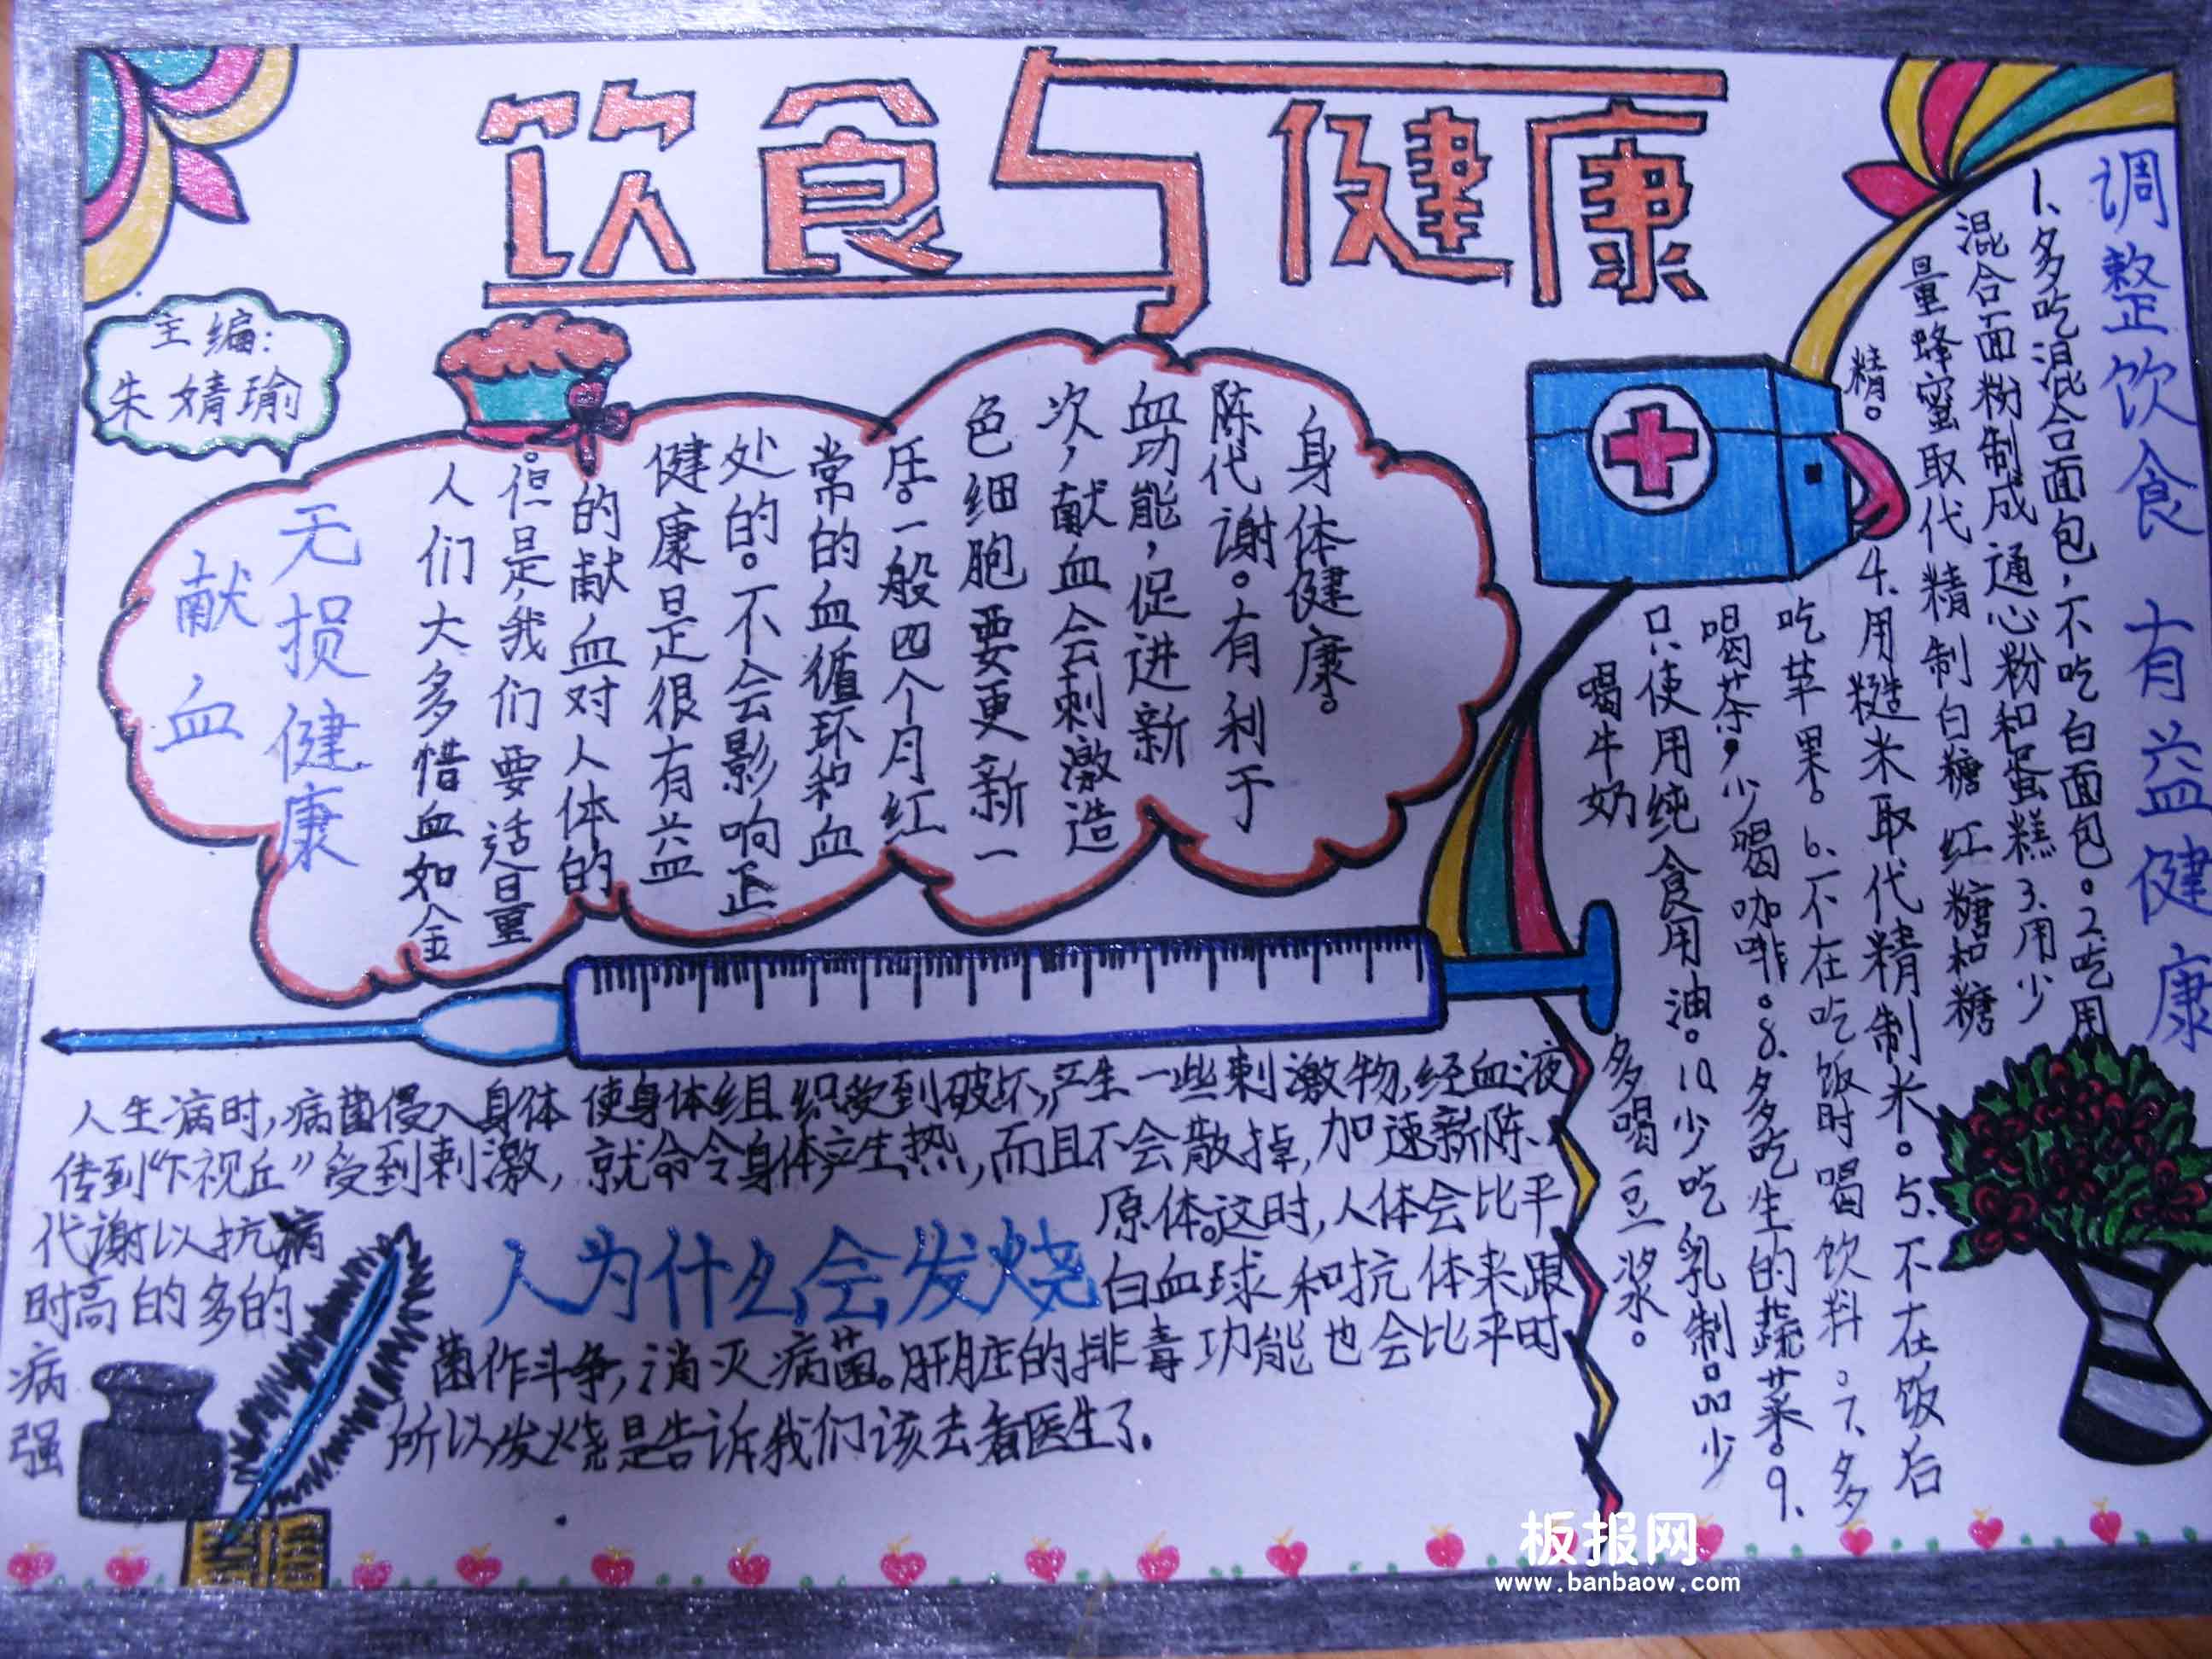 饮食与健康
主编:
朱婧瑜
献血
无损健康
人们大多惜血如金
。但是,我们要适量
的献血对人体的
健康是很有益
处的。不会影响正
常的血循环和血
压。一般四个月红
色细胞要更新一
次,献血会刺激造
血功能,促进新
陈代谢。有利于
身体健康。
调整饮食 有益健康
1、多吃混合面包,不吃白面包。2、吃用
混合面粉制成通心粉和蛋糕3、用少
量蜂蜜取代精制白糖 红糖和糖
精。
4、用糙米取代精制米。5、不在饭后
吃苹果。6、不在吃饭时喝饮料。7、多
喝茶,少喝咖啡。8、多吃生的蔬菜。9、
只使用纯食用油。10、少吃乳制品少
喝牛奶 多喝豆浆。
人生病时,病菌侵入身体 使身体组织受到破坏,产生一些刺激物,经血液
传到“下视丘”受到刺激,就命令身体产生热,而且不会散掉,加速新陈
代谢以抗病原体。这时,人体会比平
时高的多的白血球和抗体来跟
病菌作斗争,消灭病菌。肝脏的排毒功能也会比平时
强所以发烧是告诉我们该去看医生了。
人为什么会发烧
板报网
www.banbaow.com